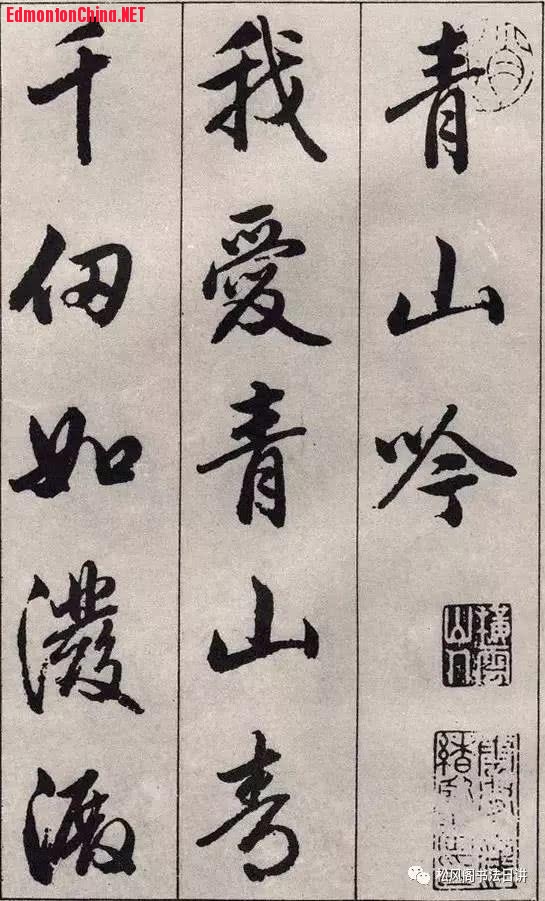 EdmontonChina.NET
青山吟
我愛青山青
千仞如潑
橫雲山人
松风阁书法日讲